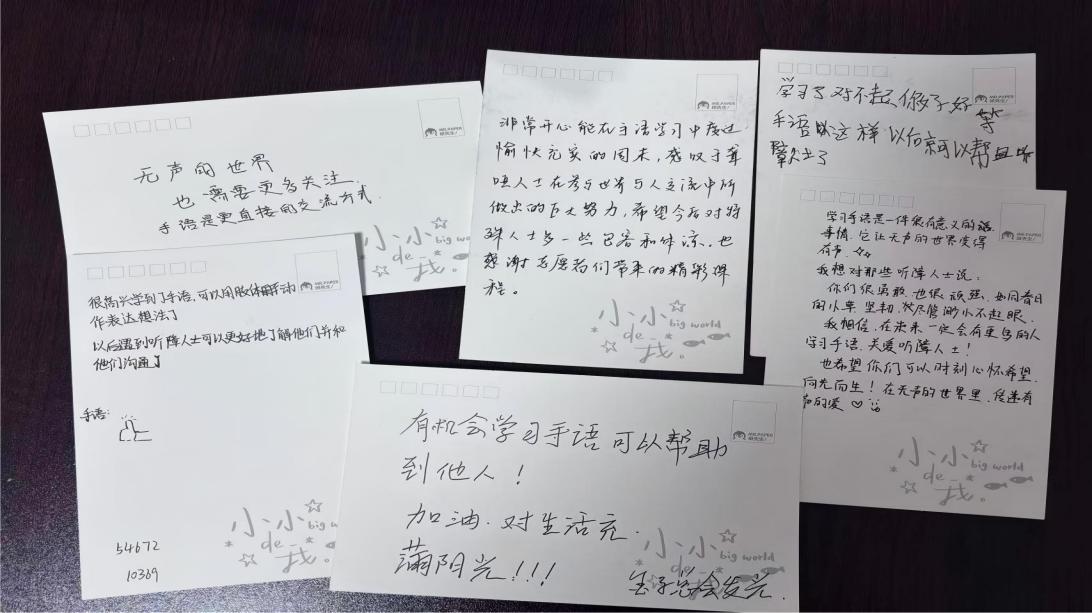 无声的世界
也需要更多关注.
手语是更直接的交流方式.
MR.PAPER
纸先生!
小、小
big world
de
我。
非常开心能在手语学习中度过
愉快充实的周末,感叹于聋
哑人士在参与世界与人交流中所
做出的巨大努力,希望今后对特
殊人士多一些包容和体谅.也
感谢志愿者们带来的精彩课
程。
MR.PAPER
纸先生!
小、小
big world
de
我。
学习了对不起,你好
等
手语 这样以后就可以帮
人士了
MR.PAPER
纸先生!
学习手语是一件很有意义的
事情.它让无声的世界变得
有声.
我想对那些听障人士说:
你们很勇敢.也很顽强.如同春日
的小草.坚韧.尽管渺小不起眼.
我相信,在未来一定会有更多的人
学习手语.关爱听障人士!
也希望你们可以时刻心怀希望.
向光而生!在无声的世界里.传递有
声的爱
MR.PAPER
纸先生!
小、小
big world
de
我。
很高兴学到了手语,可以用肢体动
作表达想法了
以后遇到听障人士可以更好地了解他们并和
他们沟通了
手语:
54672
10369
MR.PAPER
纸先生!
小、小
big w
de
我。
有机会学习手语可以帮助
到他人!
加油.对生活充
满阳光!!!
总会发光.
MR.PAPER
纸先生!
小、小
big world
de
我。